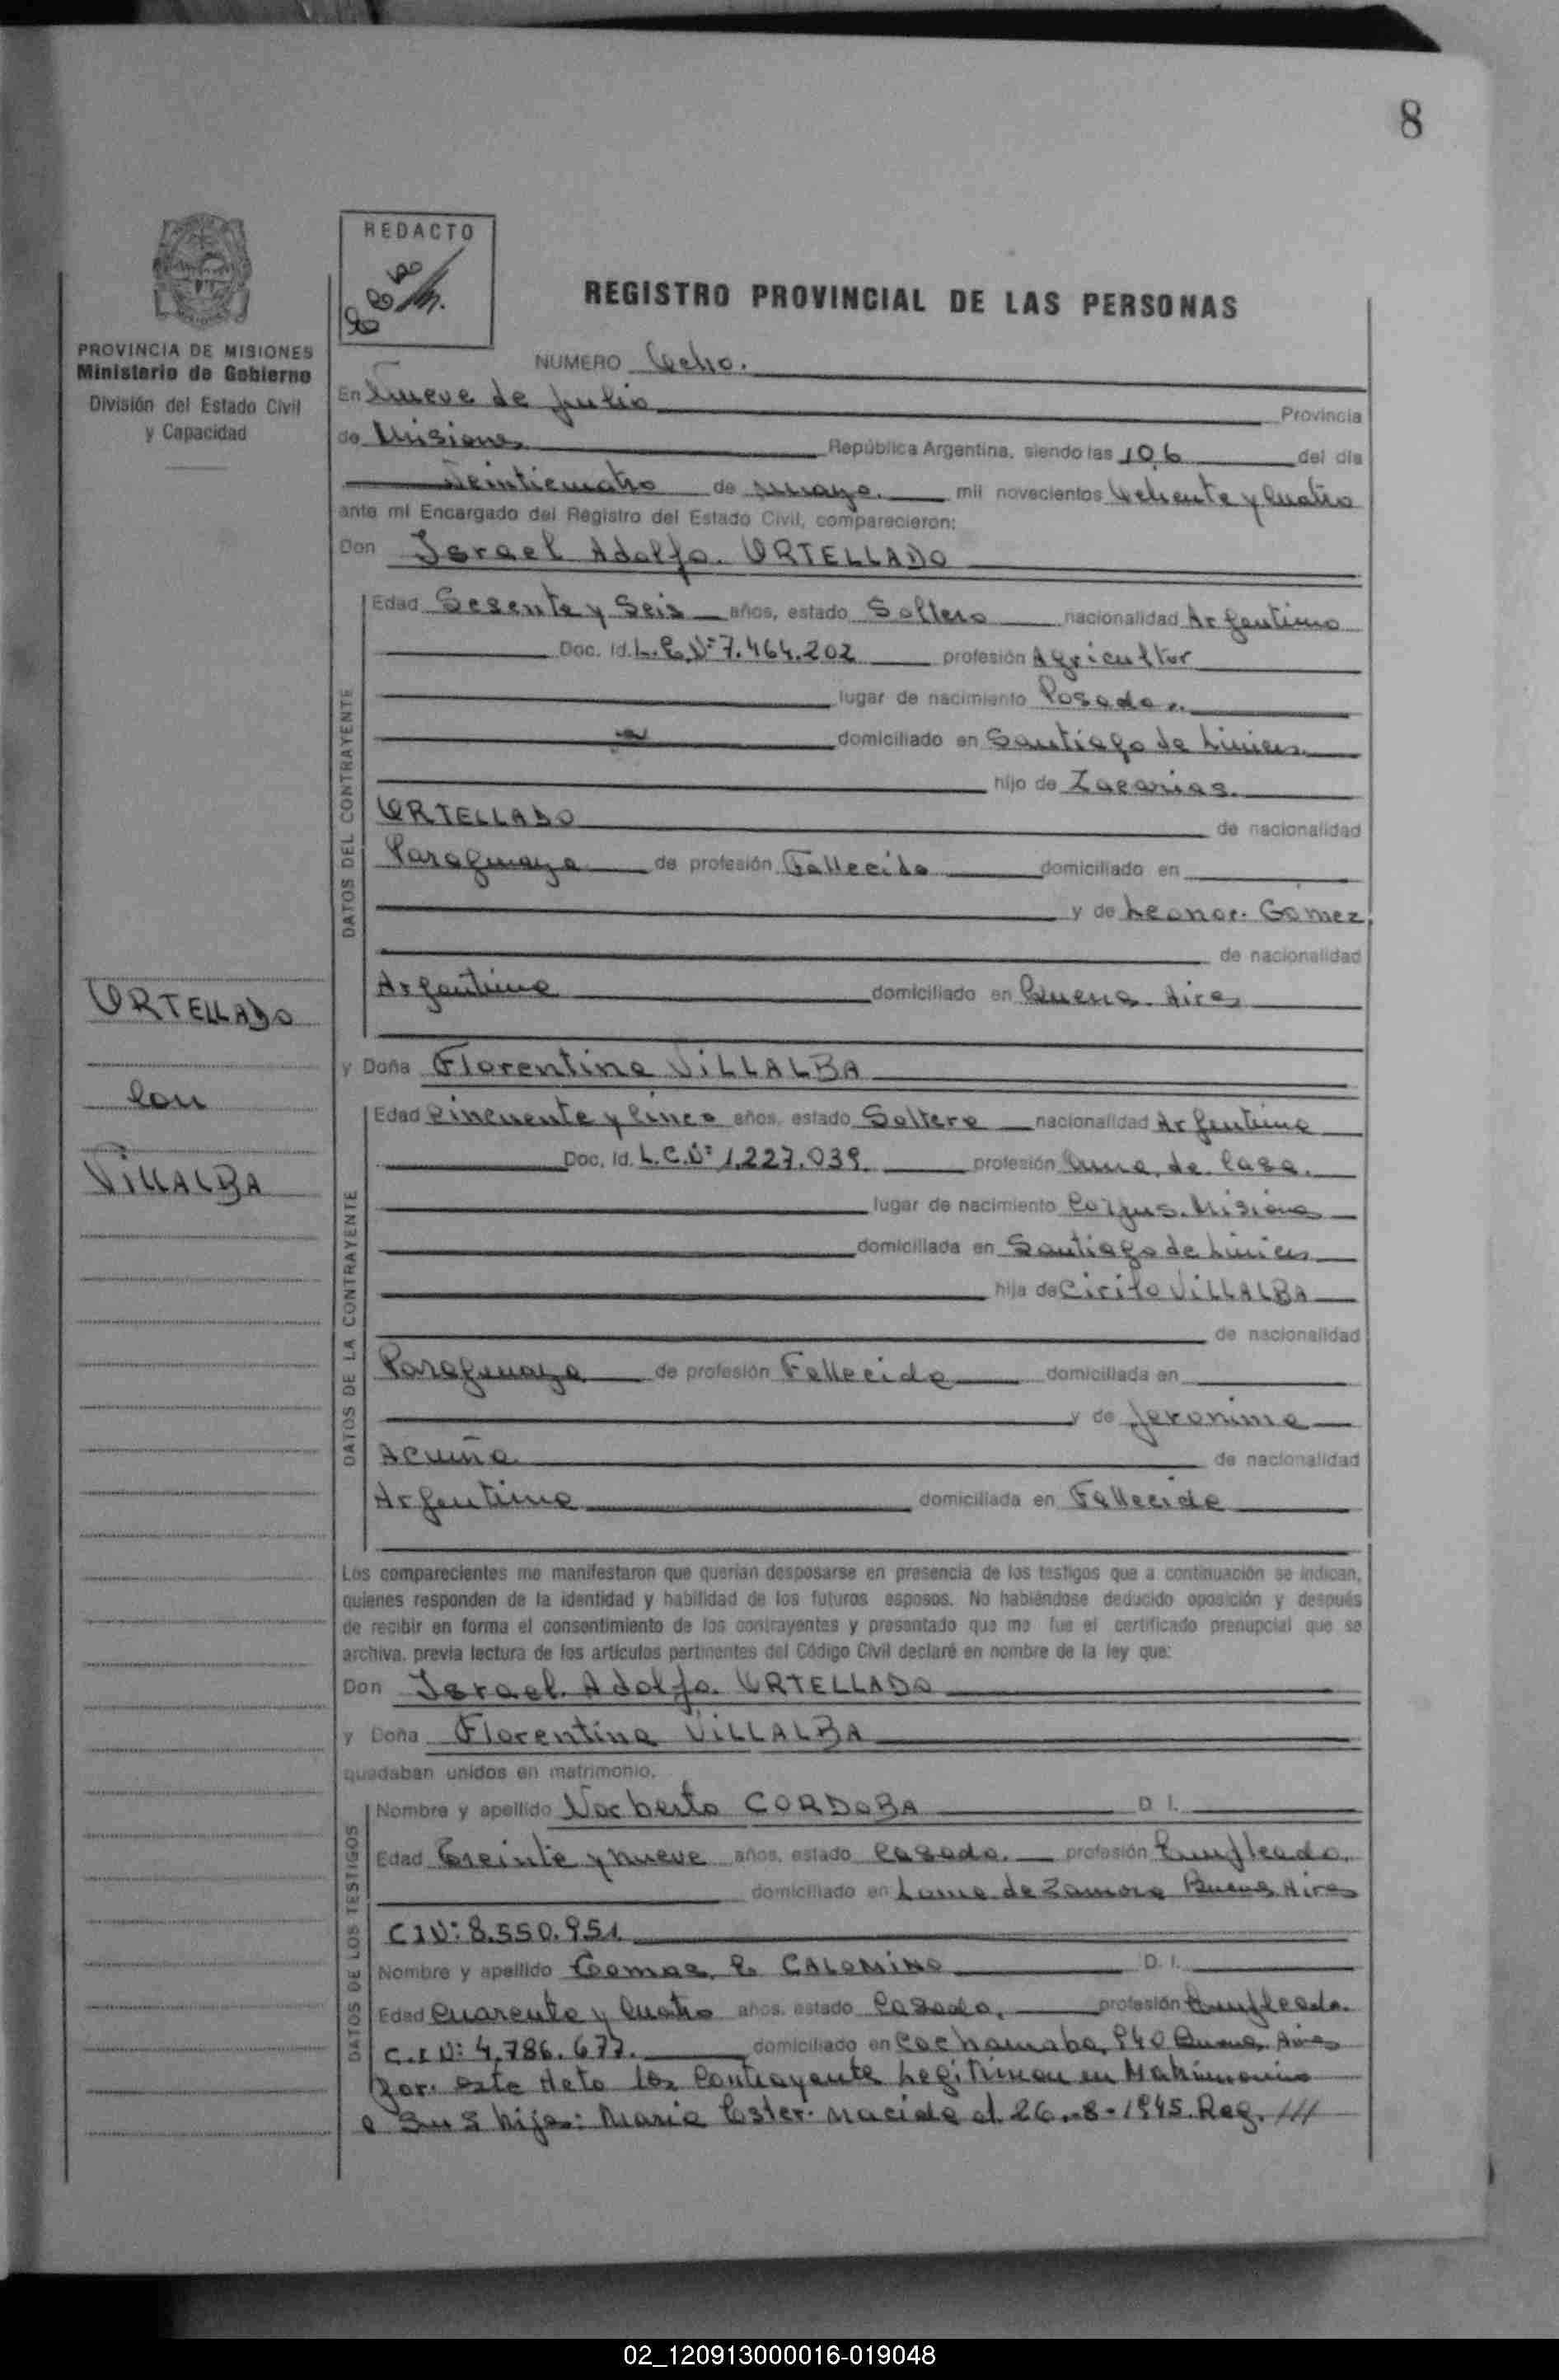 8
REDACTO
REGISTRO PROVINCIAL DE LAS PERSONAS
PROVINCIA DE MISIONES
Ministerio de Gobierno
División del Estado Civil
y Capacidad
NUMERO Ocho.
En Nueve de Julio Provincia
de Misiones República Argentina, siendo las 10,6 del día
Veinticuatro de mayo. mil novecientos Ochenta y Cuatro
ante mi Encargado del Registro del Estado Civil, comparecieron:
Don Israel Adolfo. ORTELLADO
DATOS DEL CONTRAYENTE
Edad Sesenta y Seis años, estado Soltero nacionalidad Argentino
Doc. Id. L.E.Nº 7.464.202 profesión Agricultor
lugar de nacimiento Posadas.
domiciliado en Santiago de Liniers.
hijo de Zacarias.
ORTELLADO de nacionalidad
Paraguaya de profesión Fallecido domiciliado en
y de Leonor. Gomez.
de nacionalidad
Argentina domiciliado en Buenos Aires
ORTELLADO
Con
VILLALBA
y Doña Florentina VILLALBA
DATOS DE LA CONTRAYENTE
Edad Cincuenta y Cinco años, estado Soltera nacionalidad Argentina
Doc. Id. L.C.Nº 1.227.039. profesión Ama de Casa.
lugar de nacimiento Corpus. Misiones
domiciliada en Santiago de Liniers
hija de Cirilo VILLALBA
de nacionalidad
Paraguaya de profesión Fallecido domiciliada en
y de Jeronima
Acuña de nacionalidad
Argentina domiciliada en Fallecida
Los comparecientes me manifestaron que querían desposarse en presencia de los testigos que a continuación se indican,
quienes responden de la identidad y habilidad de los futuros esposos. No habiéndose deducido oposición y después
de recibir en forma el consentimiento de los contrayentes y presentado que me fue el certificado prenupcial que se
archiva, previa lectura de los artículos pertinentes del Código Civil declaré en nombre de la ley que:
Don Israel. Adolfo. ORTELLADO
y Doña Florentina VILLALBA
quedaban unidos en matrimonio.
DATOS DE LOS TESTIGOS
Nombre y apellido Norberto CORDOBA D. I.
Edad Treinta y nueve años, estado Casado. profesión Empleado.
domiciliado en Loma de Zamora Buenos Aires
CIN: 8.550.951.
Nombre y apellido Tomas. E. CALOMINO D. I.
Edad Cuarenta y Cuatro años, estado Casado. profesión Empleado.
C.I N: 4.786.677. domiciliado en Cochamaba. 940 Buenos Aires
Por. este Acto los Contrayente Legitiman en Matrimonio
a Sus hijos: Maria Ester. nacida el 26.-8-1945. Reg. ///
02_120913000016-019048